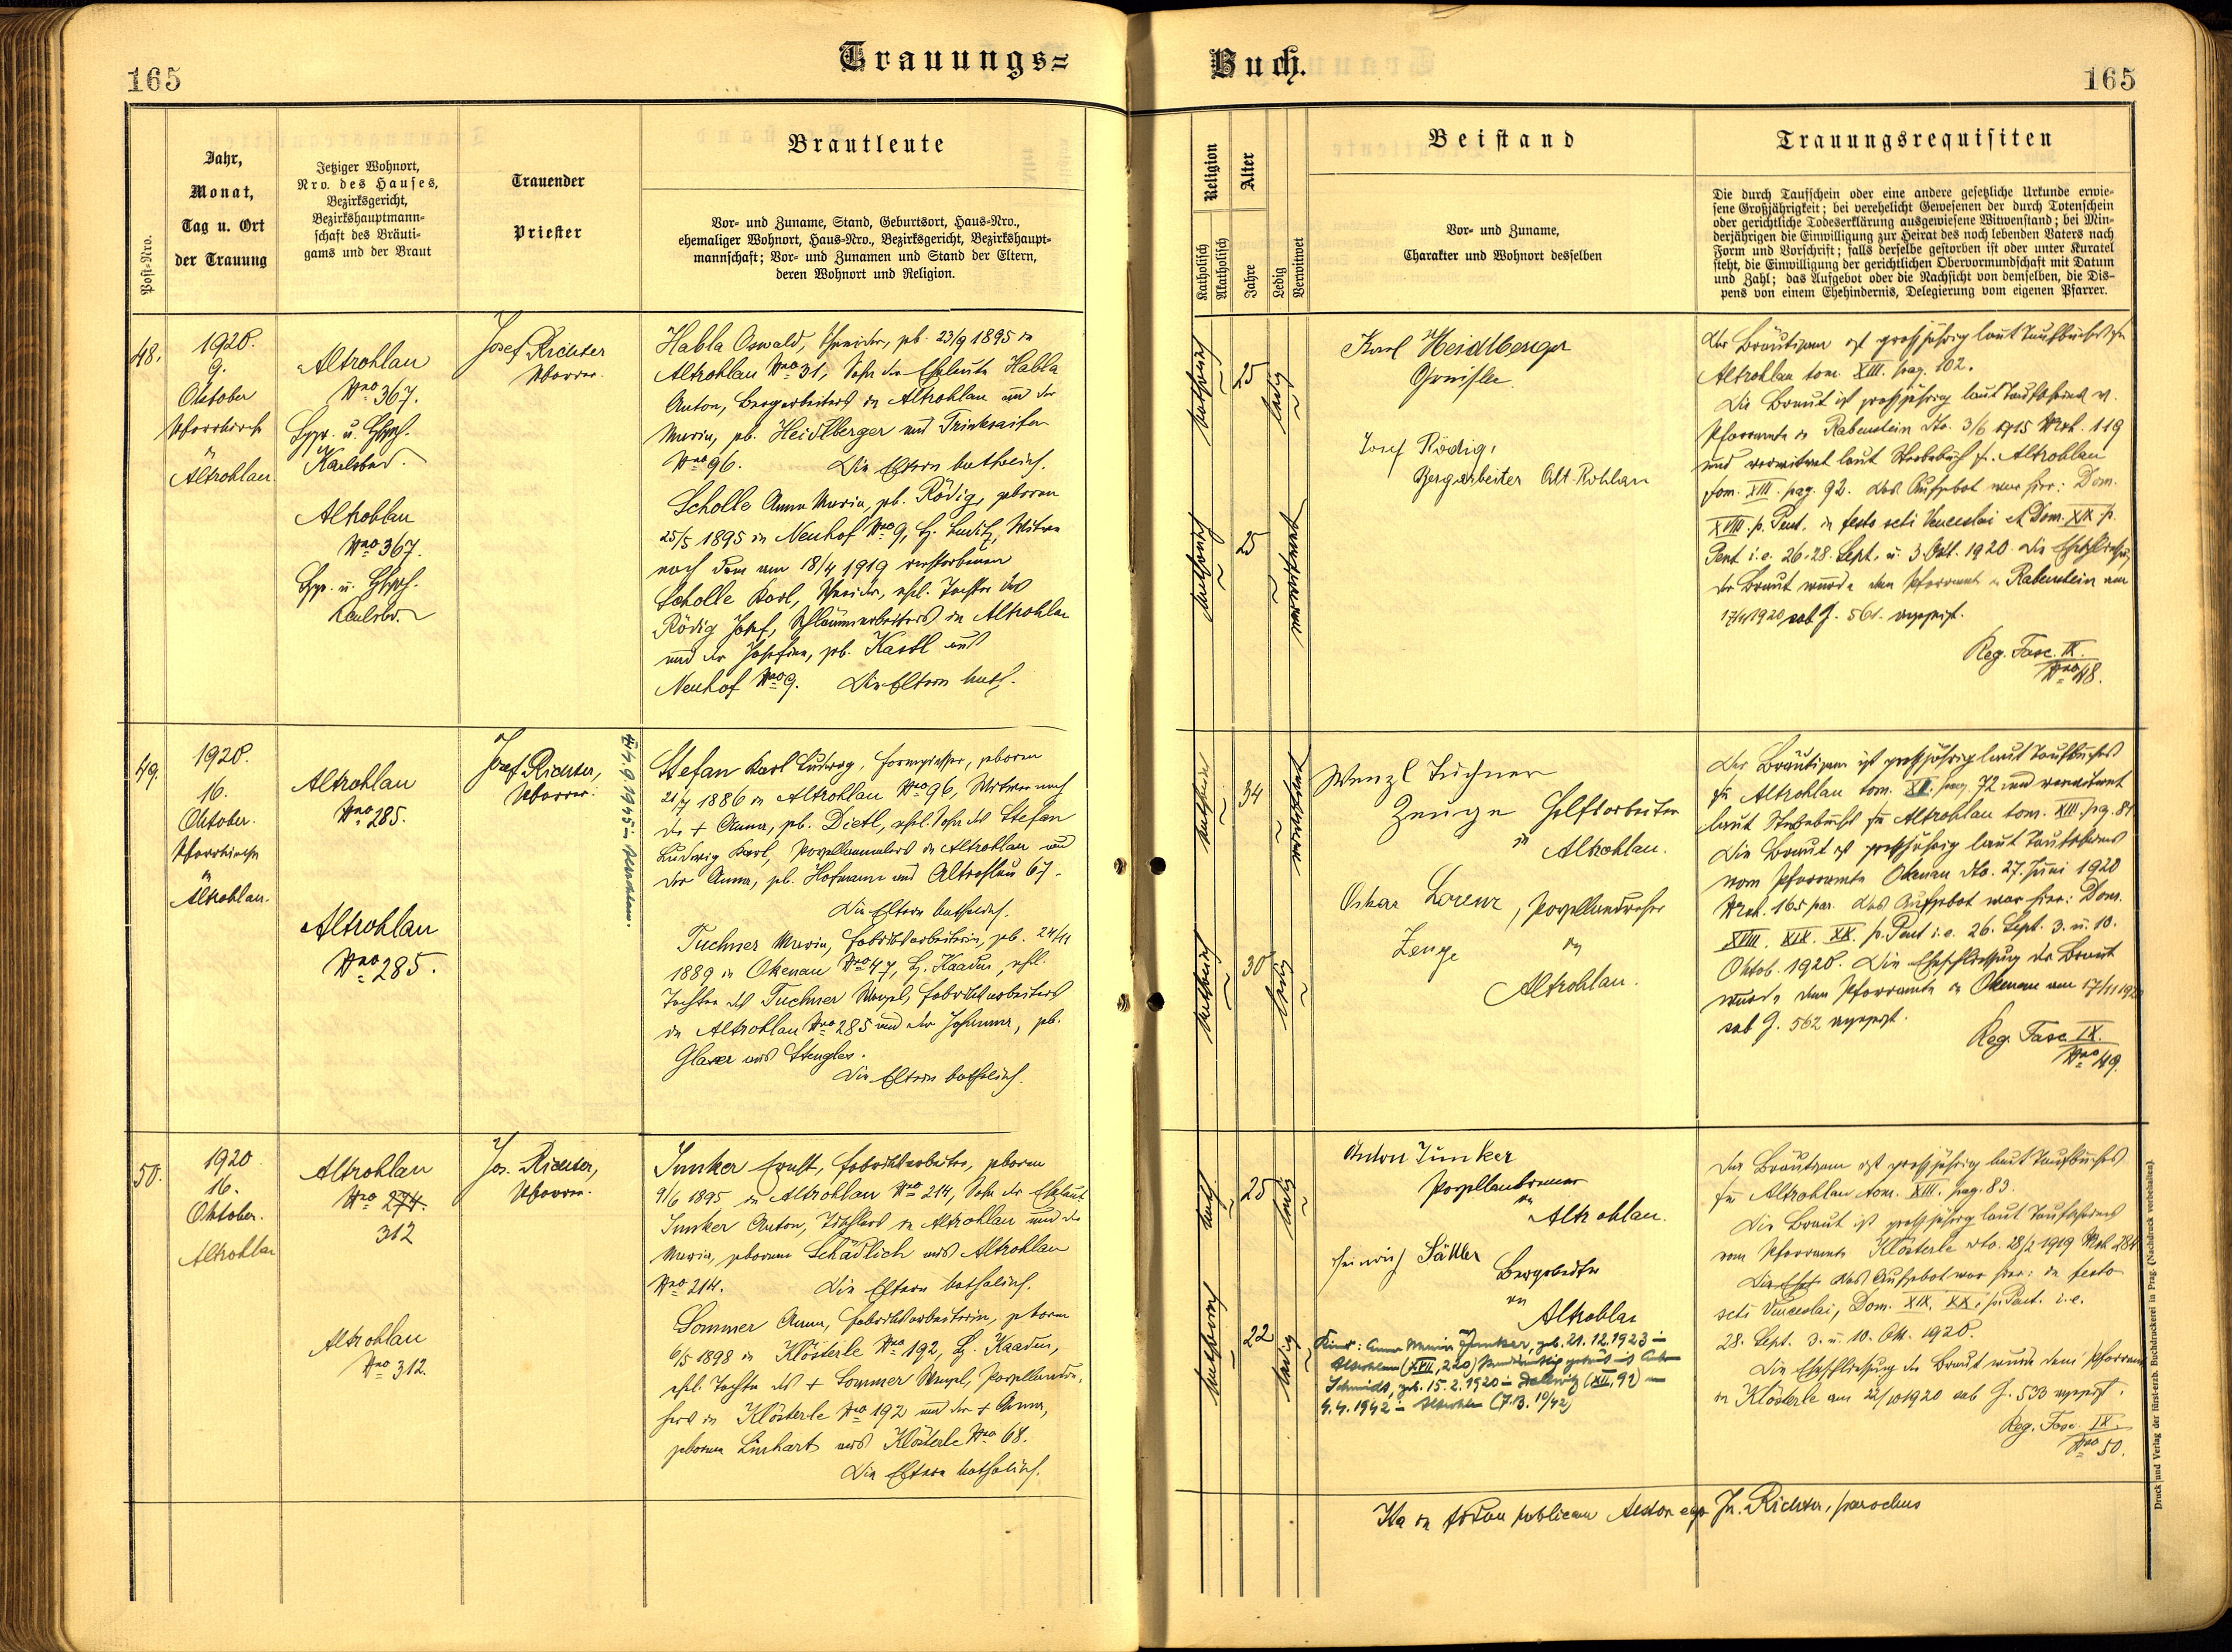 Trauungs=
Buch.
165
165
Post=Nro.
Jahr,
Monat,
Tag u. Ort
der Trauung
Jetziger Wohnort,
Nro. des Hauses,
Bezirksgericht,
Bezirkshauptmann=
schaft des Bräuti=
gams und der Braut
Trauender
Priester
Brautleute
Vor= und Zuname, Stand, Geburtsort, Haus=Nro.,
ehemaliger Wohnort, Haus=Nro., Bezirksgericht, Bezirkshaupt=
mannschaft; Vor= und Zunamen und Stand der Eltern,
deren Wohnort und Religion.
Religion
Katholisch
Akatholisch
Alter
Jahre
Ledig
Verwitwet
Beistand
Vor= und Zuname,
Charakter und Wohnort desselben
Trauungsrequisiten
Die durch Taufschein oder eine andere gesetzliche Urkunde erwie=
sene Großjährigkeit; bei verehelicht Gewesenen der durch Totenschein
oder gerichtliche Todeserklärung ausgewiesene Witwenstand; bei Min=
derjährigen die Einwilligung zur Heirat des noch lebenden Vaters nach
Form und Vorschrift; falls derselbe gestorben ist oder unter Kuratel
steht, die Einwilligung der gerichtlichen Obervormundschaft mit Datum
und Zahl; das Aufgebot oder die Nachsicht von demselben, die Dis=
pens von einem Ehehindernis, Delegierung vom eigenen Pfarrer.
48.
1920.
9.
Oktober
Pfarrkirche
in
Altrohlau
Altrohlau
Nro 367.
Karlsbad.
Altrohlau
Nro 367.
Karlsbd.
Josef Richter
Pfarrer.
Habla Oswald, geb. 23/9 1895 in
Altrohlau Nro 31, Sohn der Eheleute Habla
Anton, Bergarbeiters in Altrohlau und der
Maria, geb. Heidlberger aus Trinksaifen
Nro 96. Die Eltern katholisch.
Scholle Anna Maria, geb. Rödig, geboren
25/5 1895 in Neuhof Nro 9, Bz. Luditz, Witwe
nach dem am 18/4 1919 verstorbenen
Scholle Karl, ehel. Tochter des
Rödig Josef, in Altrohlau
und der Josefine, geb. Kastl aus
Neuhof Nro 9. Die Eltern kath.
katholisch
25
ledig
katholisch
25
verwitwet
Karl Heidlberger
Josef Rödig,
Bergarbeiter Alt-Rohlau
Der Bräutigam ist grossjährig laut Taufbuches für
Altrohlau tom. XIII. pag. 102.
Die Braut ist grossjährig laut Taufschein v.
Pfarramte in Rabenstein dto. 3/6 1915 Mat. 119
und verwitwet laut Sterbebuch f. Altrohlau
tom. XIII. pag. 92. Das Aufgebot war hier: Dom.
XVIII. p. Pent. in festo scti Venceslai et Dom. XIX p.
Pent i. e. 26. 28. Sept. u. 3. Okt. 1920. Die Eheschließung
der Braut wurde dem Pfarramte in Rabenstein am
1920 sub Z. 561. angezeigt.
Reg. Fasc. IX.
Nro 48.
49.
1920.
16.
Oktober.
Pfarrkirche
in
Altrohlau.
Altrohlau
Nro 285.
Altrohlau
Nro 285.
Josef Richter,
Pfarrer.
Stefan Karl Ludwig, Formgießer, geboren
1886 in Altrohlau Nro 96, Witwer nach
der + Anna, geb. Dietl, ehel. Sohn des Stefan
Ludwig Karl, Porzellanmalers in Altrohlau und
der Anna, geb. Hofmann aus Altrohlau 67.
Die Eltern katholisch.
Tuchner Maria, Fabriksarbeiterin, geb. 24/11
1889 in Okenau Nro 47, Bz. Kaaden, ehel.
Tochter des Tuchner Wenzel, Fabriksarbeiters
in Altrohlau Nro 285 und der Johanna, geb.
Glaser aus Stengles.
Die Eltern katholisch.
katholisch
34
verwitwet
katholisch
30
ledig
Wenzl Tuchner
Zeuge Hilfsarbeiter
in Altrohlau.
Oskar Lorenz, Porzellandreher
Zeuge in
Altrohlau.
Der Bräutigam ist grossjährig laut Taufbuches
für Altrohlau tom. XII. pag. 72 und verwitwet
laut Sterbebuches für Altrohlau tom. XIII. pag. 81
Die Braut ist grossjährig laut Taufscheines
vom Pfarramte Okenau dto. 27. Juni 1920
Mat. 165 par. Das Aufgebot war hier: Dom.
XVIII. XIX. XX. p. Pent i. e. 26. Sept. 3. u. 10.
Oktob. 1920. Die Eheschließung der Braut
wurde dem Pfarramte in Okenau am 17/11 1920
sub Z. 562 angezeigt.
Reg. Fasc. IX.
Nro 49.
50.
1920
16.
Oktober.
Altrohlau
Altrohlau
Nro 274.
312
Altrohlau
Nro 312.
Jos. Richter,
Pfarrer.
Junker Ernst, Fabriksarbeiter, geboren
9/6 1895 in Altrohlau Nro 214, Sohn der Eheleute
Junker Anton, Tischlers in Altrohlau und der
Maria, geborene Schädlich aus Altrohlau
Nro 214. Die Eltern katholisch.
Sommer Anna, Fabriksarbeiterin, geboren
6/5 1898 in Klösterle Nro 192, Bz. Kaaden,
ehel. Tochter des + Sommer Wenzel, Porzellandre-
hers in Klösterle Nro 192 und der + Anna,
geborene Linhart aus Klösterle Nro 68.
Die Eltern katholisch.
kath
25
ledig
katholisch
22
ledig
Anton Junker
Porzellanbrenner
in Altrohlau.
Heinrich Sattler
Bergarbeiter
in
Altrohlau
Kind: Anna Maria Junker, geb. 21.12.1923 in
Altrohlau (XVII, 220) getraut mit
Schmidt, geb. 15.2.1920 in Dallwitz (XII, 92) am
4.4.1942 in Altrohlau (T.B. 10/42)
Der Bräutigam ist grossjährig laut Taufbuches
für Altrohlau tom. XIII. pag. 83.
Die Braut ist grossjährig laut Taufscheines
vom Pfarramte Klösterle dto. 28/2 1919 Mat 284
Das Aufgebot war hier: in festo
scti Venceslai, Dom. XIX. XX. p. Pent. i. e.
28. Sept. 3. u. 10. Okt. 1920.
Die Eheschließung der Braut wurde dem Pfarramte
in Klösterle am 22/10 1920 sub Z. 533 angezeigt.
Reg. Fasc. IX.
Nro 50.
Ita in fidem publicam testor ego Jos. Richter, parochus
Druck und Verlag der fürst-erzb. Buchdruckerei in Prag. (Nachdruck vorbehalten).